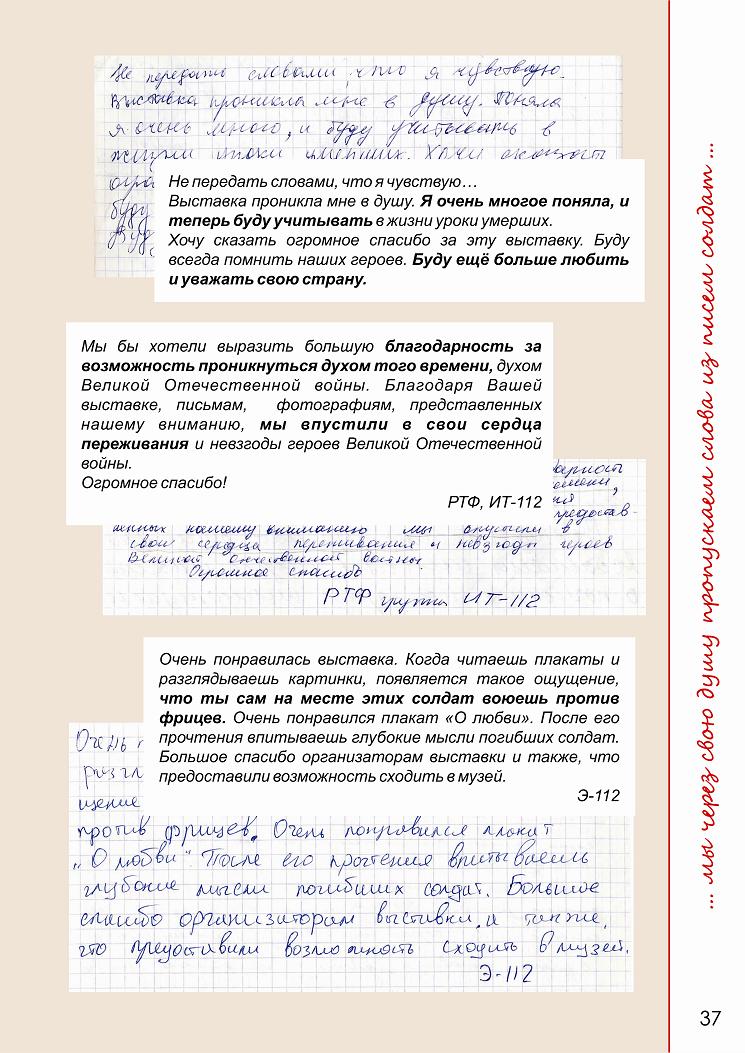 Не передать словами, что я чувствую.
Выставка проникла мне в душу. Поняла
я очень много, и буду учитывать в
жизни уроки умерших. Хочу сказать
огро
буду
Буд
Не передать словами, что я чувствую…
Выставка проникла мне в душу. Я очень многое поняла, и
теперь буду учитывать в жизни уроки умерших.
Хочу сказать огромное спасибо за эту выставку. Буду
всегда помнить наших героев. Буду ещё больше любить
и уважать свою страну.
Мы бы хотели выразить большую благодарность за
возможность проникнуться духом того времени, духом
Великой Отечественной войны. Благодаря Вашей
выставке, письмам, фотографиям, представленных
нашему вниманию, мы впустили в свои сердца
переживания и невзгоды героев Великой Отечественной
войны.
Огромное спасибо!
РТФ, ИТ-112
дарность
ремени,
ия
предостав-
ленных нашему вниманию мы впустили в
свои сердца переживания и невзгоды героев
Великой Отечественной войны.
Огромное спасибо
РТФ группа ИТ-112
Очень понравилась выставка. Когда читаешь плакаты и
разглядываешь картинки, появляется такое ощущение,
что ты сам на месте этих солдат воюешь против
фрицев. Очень понравился плакат «О любви». После его
прочтения впитываешь глубокие мысли погибших солдат.
Большое спасибо организаторам выставки и также, что
предоставили возможность сходить в музей.
Э-112
Очень п
разгл
щение
против фрицев. Очень понравился плакат
„О любви“. После его прочтения впитываешь
глубокие мысли погибших солдат. Большое
спасибо организаторам выставки, и также,
что предоставили возможность сходить в музей.
Э-112
... мы через свою душу пропускаем слова из писем солдат ...
37